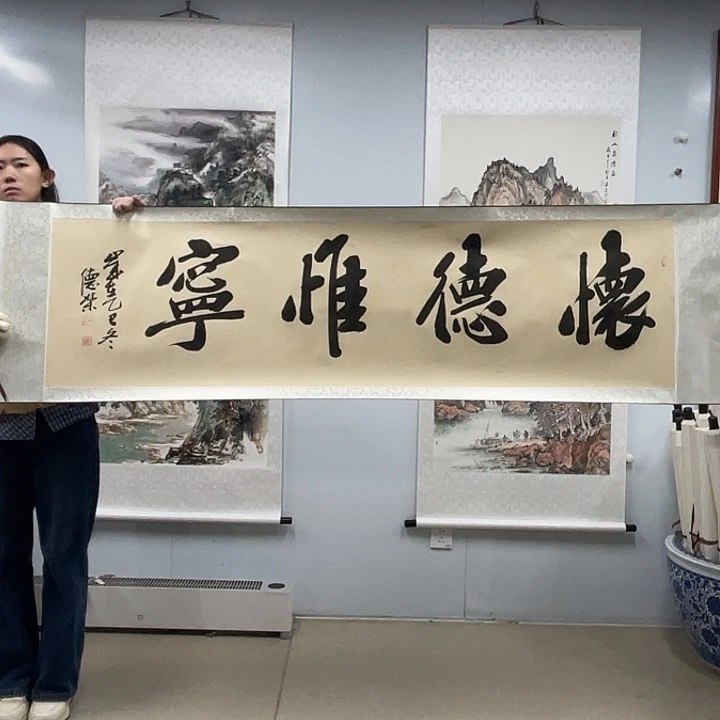 懷德惟寧
歲在乙巳冬
德榮